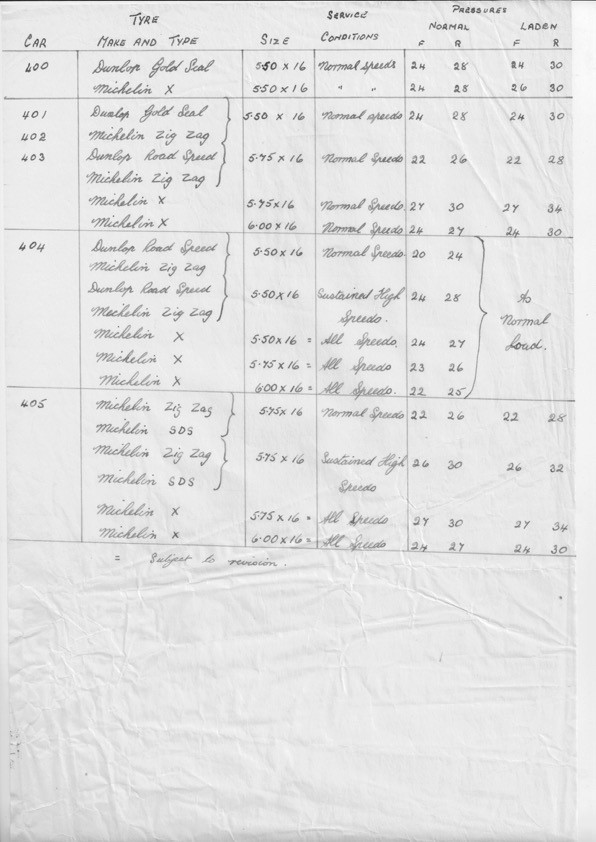 TYRE SERVICE PRESSURES
NORMAL LADEN
CAR MAKE AND TYPE SIZE CONDITIONS F R F R
400 Dunlop Gold Seal 5·50 x 16 Normal Speeds 24 28 24 30
Michelin X 5·50 x 16 " " 24 28 26 30
401 Dunlop Gold Seal 5·50 x 16 Normal speeds 24 28 24 30
402 Michelin Zig Zag
403 Dunlop Road Speed 5·75 x 16 Normal Speeds 22 26 22 28
Michelin Zig Zag
Michelin X 5·75 x 16 Normal Speeds 27 30 27 34
Michelin X 6·00 x 16 Normal Speeds 24 27 24 30
404 Dunlop Road Speed 5·50 x 16 Normal Speeds 20 24
Michelin Zig Zag
Dunlop Road Speed 5·50 x 16 Sustained High 24 28 As
Michelin Zig Zag Speeds. Normal
Michelin X 5·50 x 16 = All Speeds 24 27 Load.
Michelin X 5·75 x 16 = All Speeds 23 26
Michelin X 6·00 x 16 = All Speeds. 22 25
405 Michelin Zig Zag 5·75 x 16 Normal Speeds 22 26 22 28
Michelin SDS
Michelin Zig Zag 5·75 x 16 Sustained High 26 30 26 32
Michelin SDS Speeds
Michelin X 5·75 x 16 = All Speeds 27 30 27 34
Michelin X 6·00 x 16 = All Speeds 24 27 24 30
= Subject to revision.